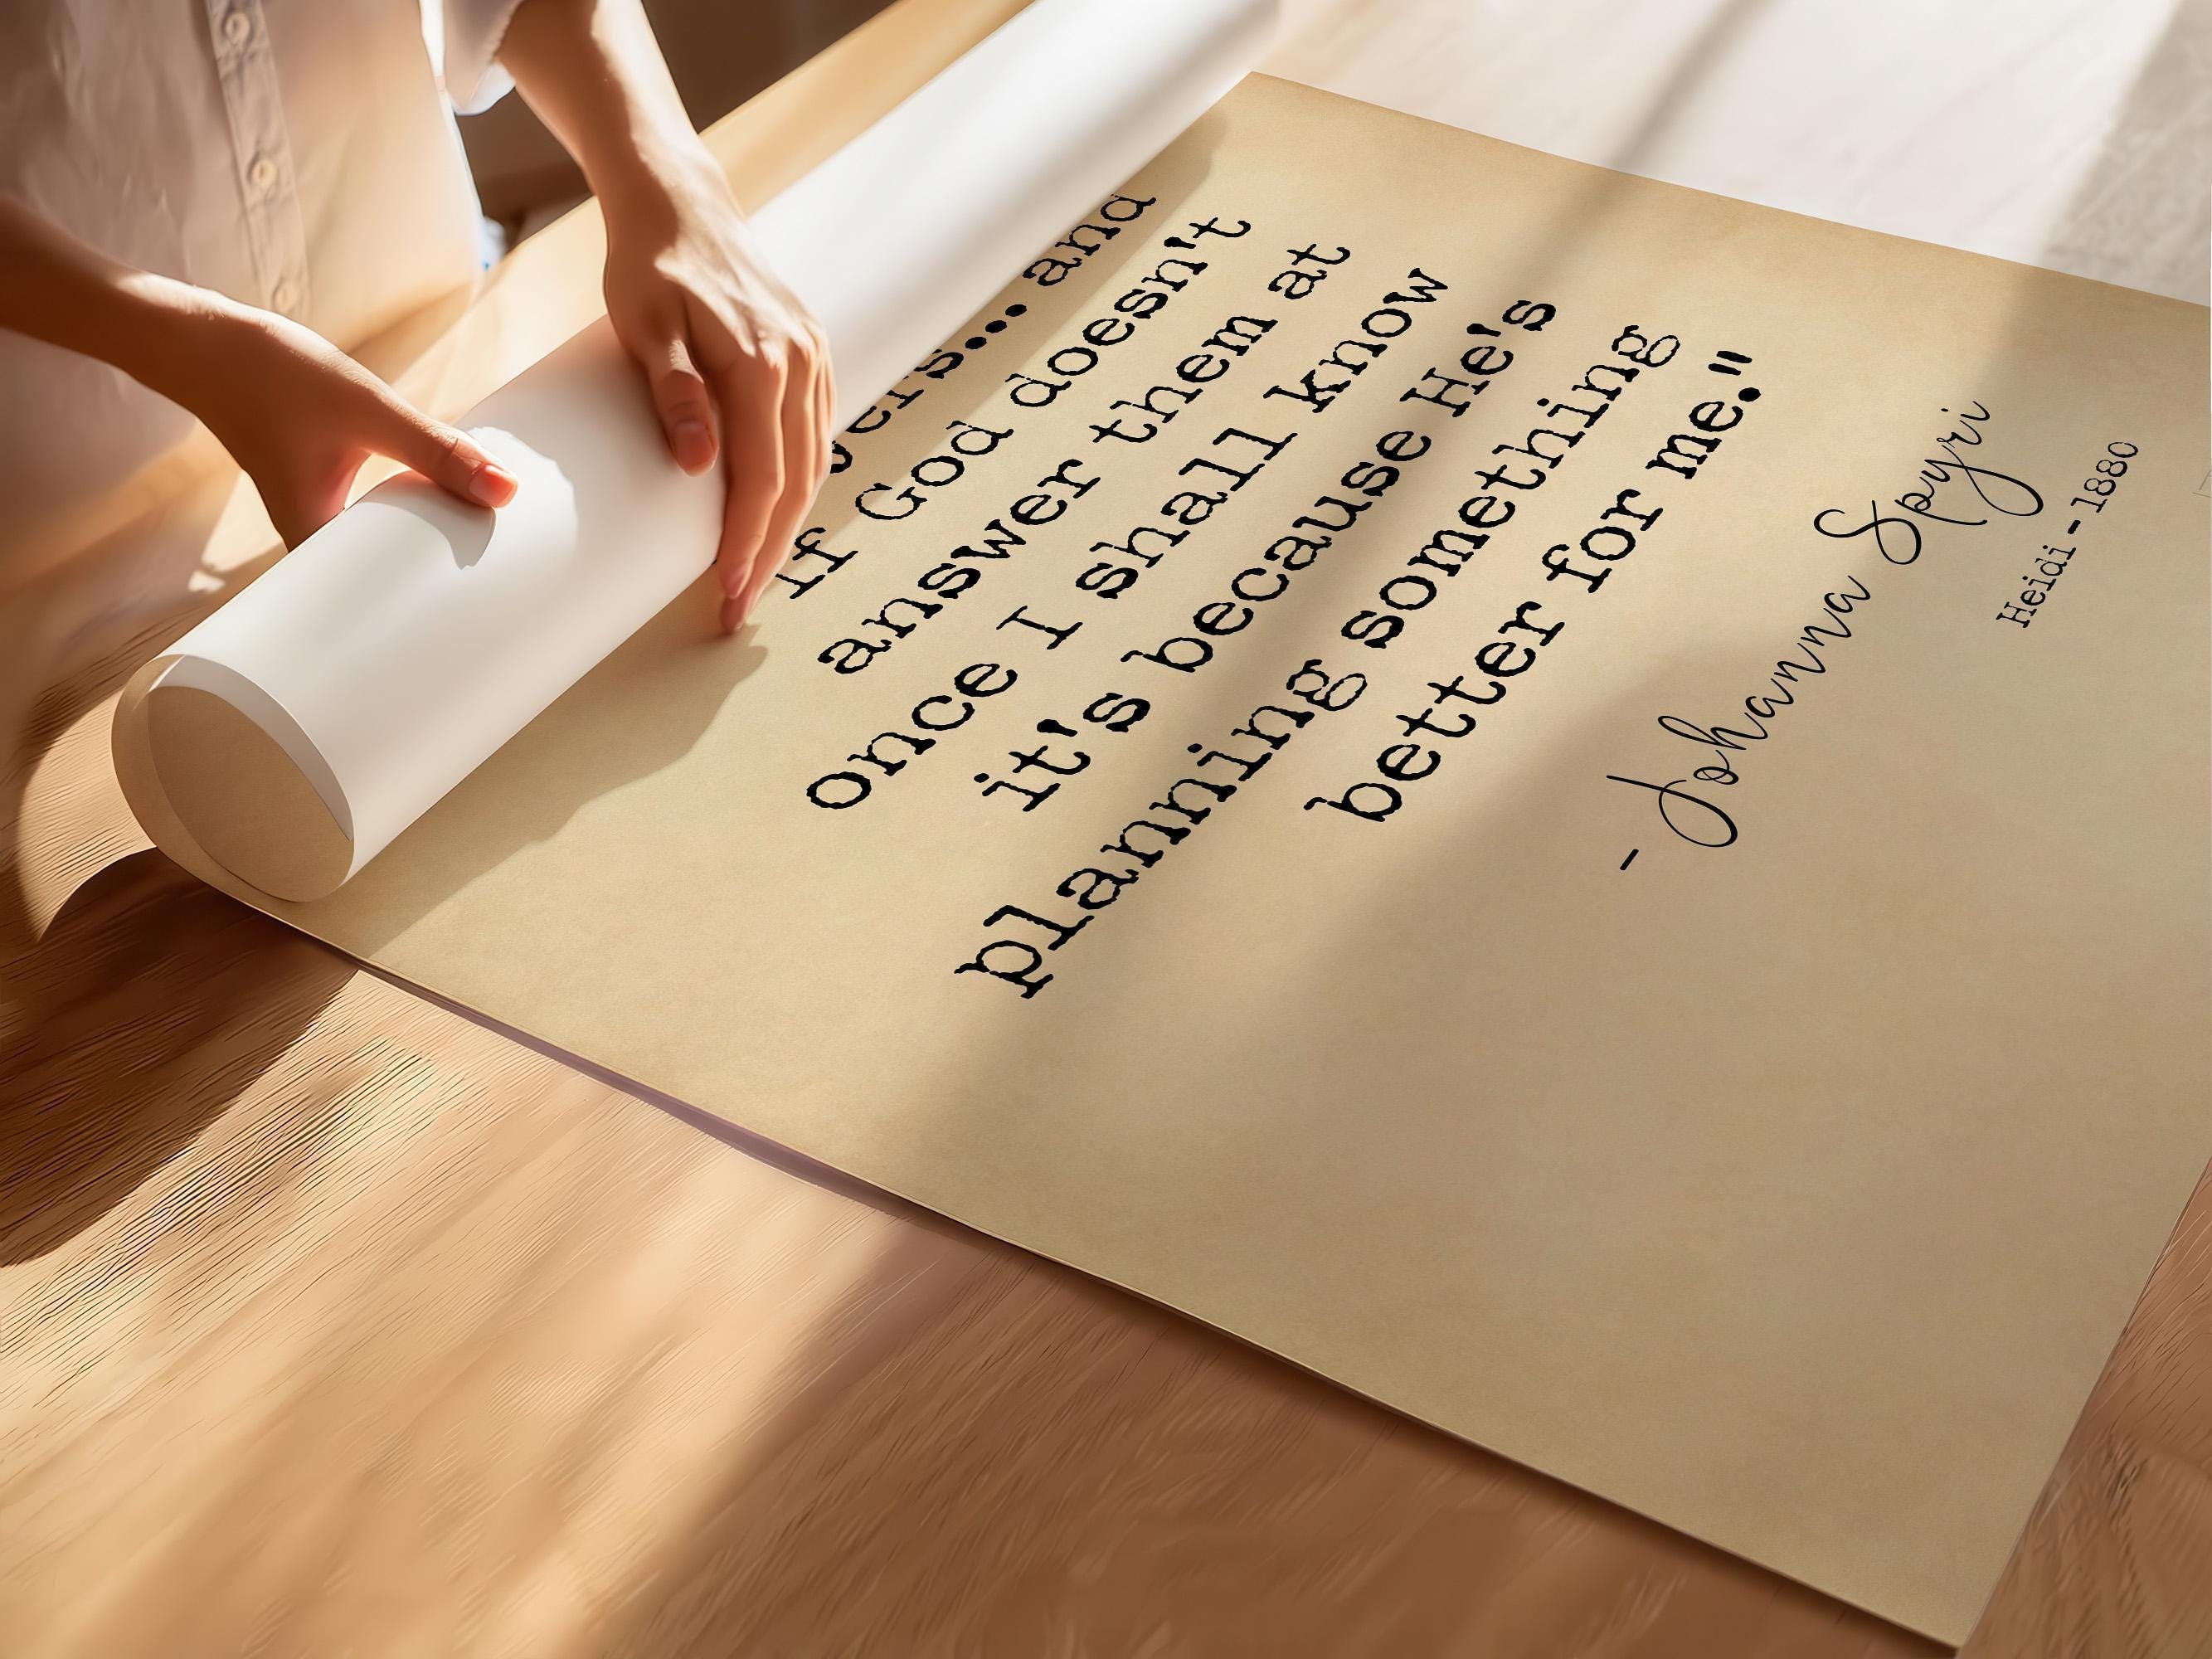 ... and
if God doesn't
answer them at
once I shall know
it's because He's
planning something
better for me."
- Johanna Spyri
Heidi - 1880